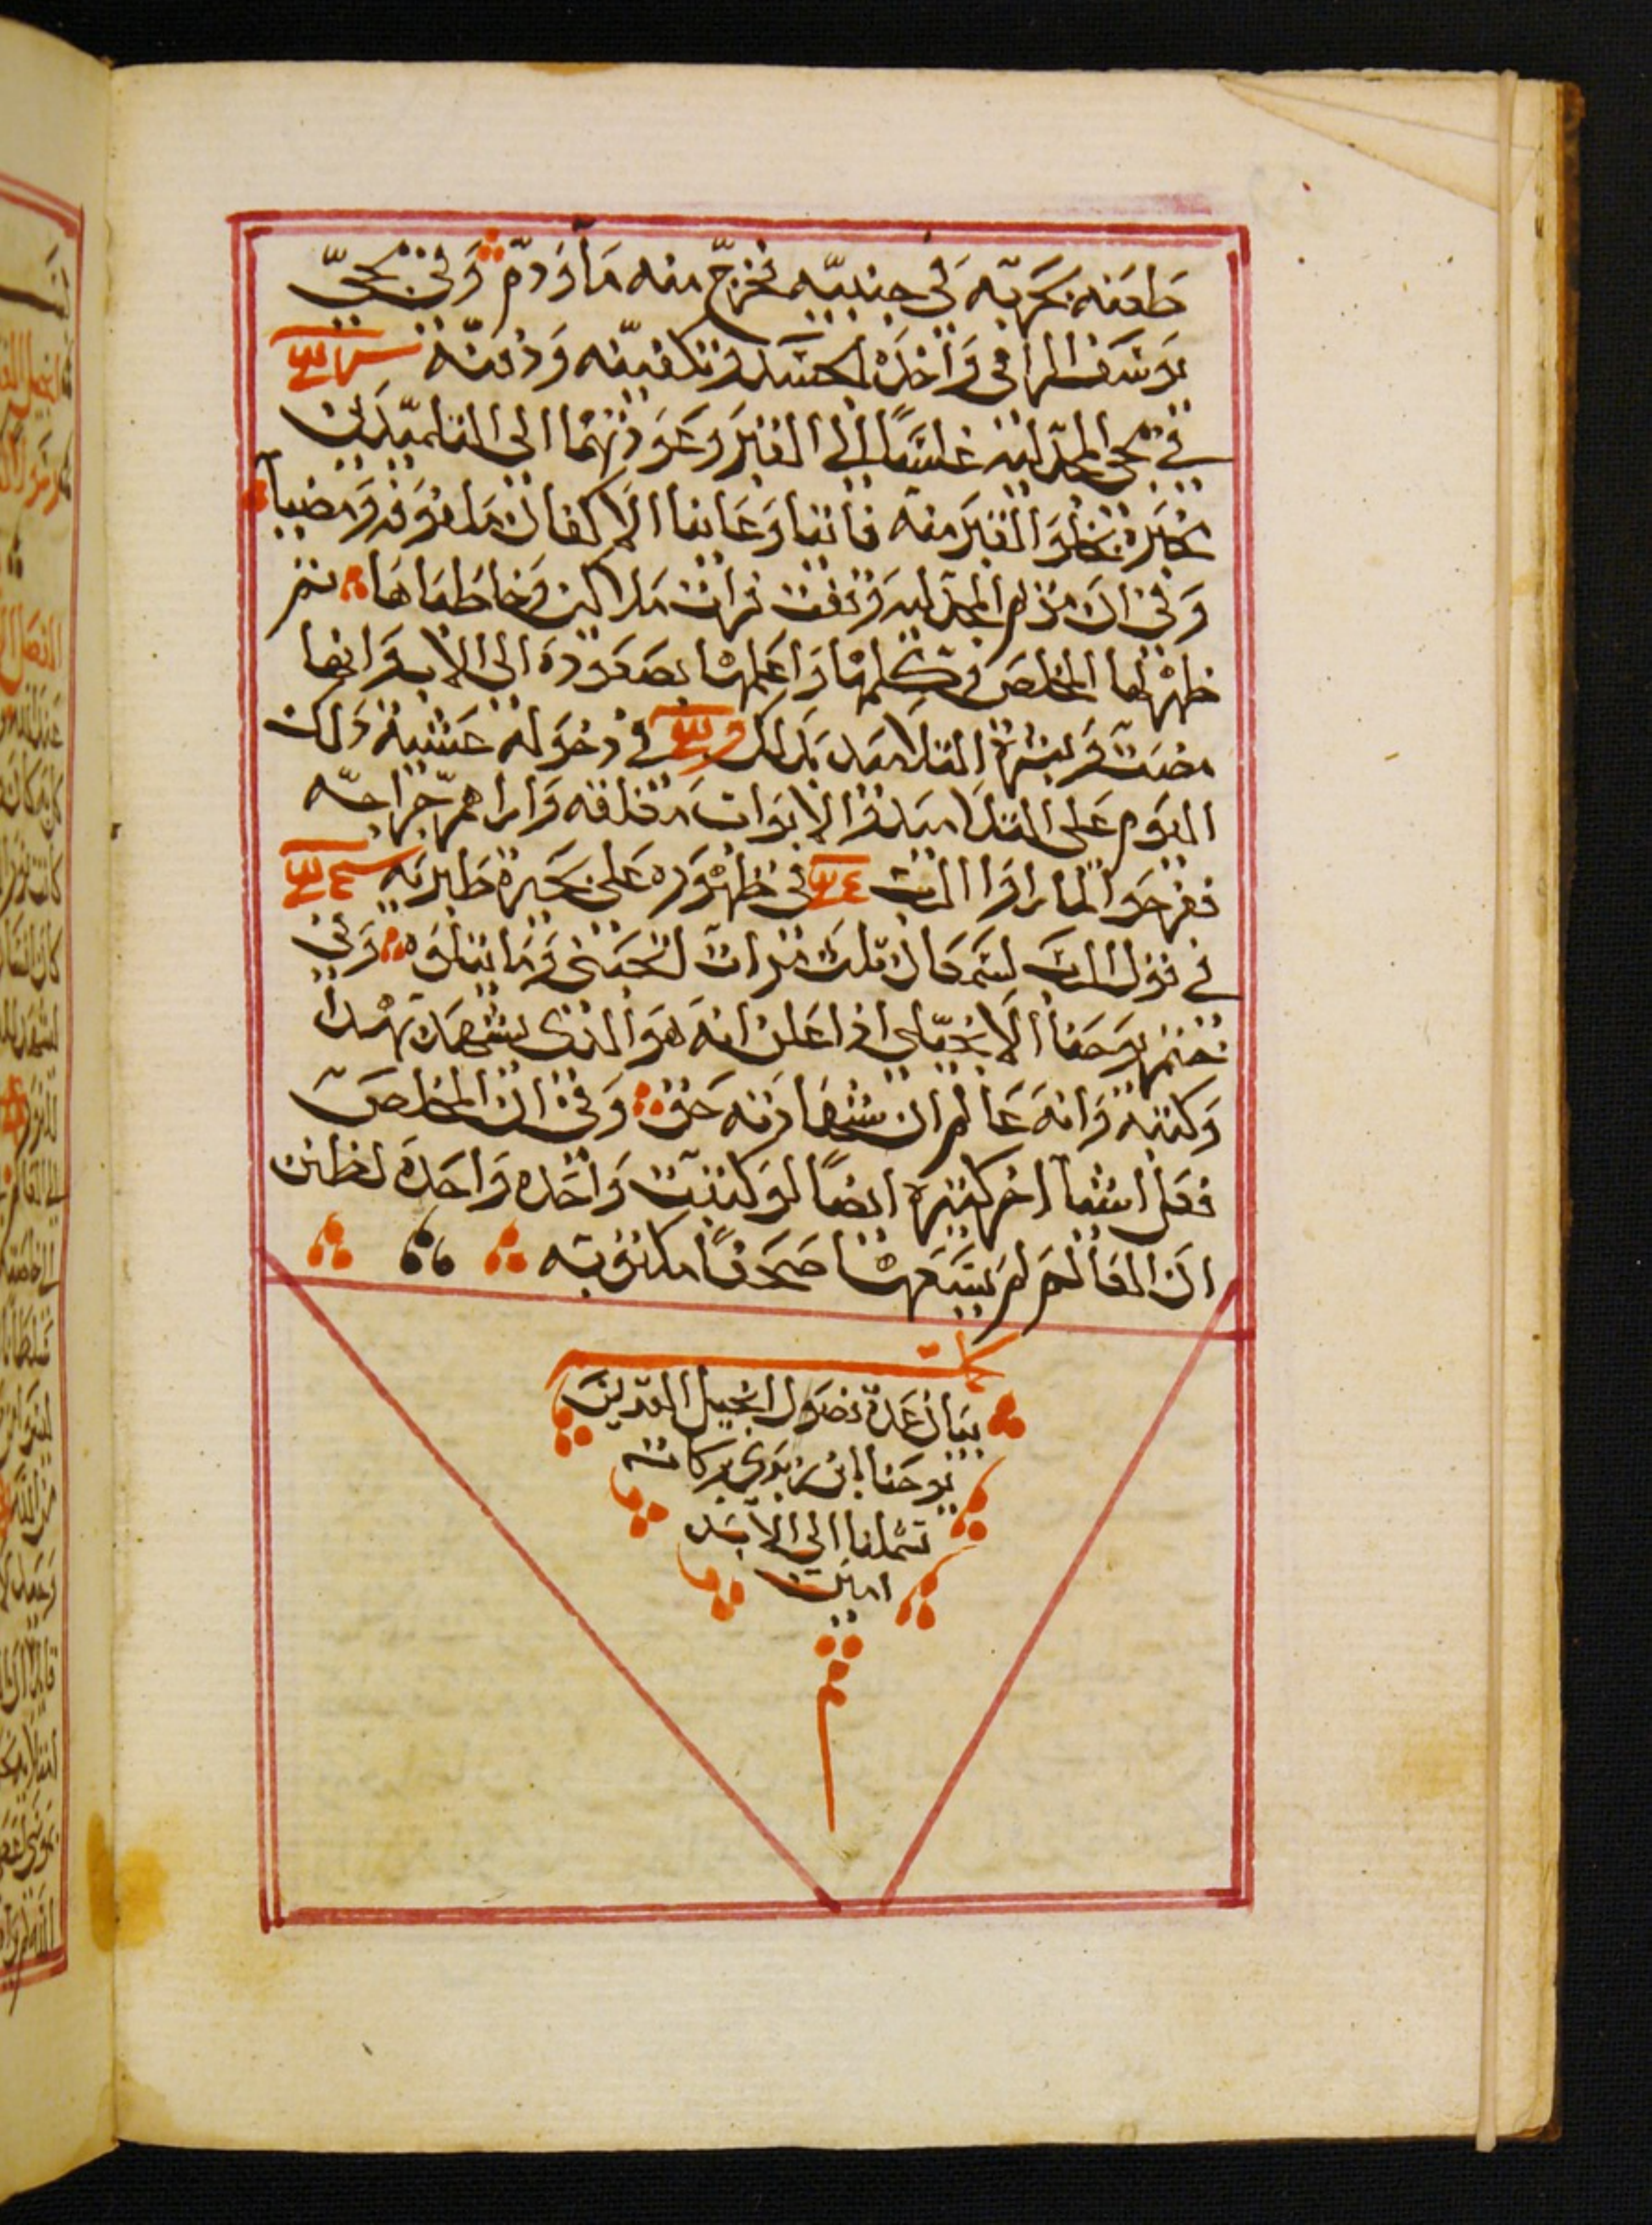 طعنه بحربه في جنبيه فخرج منه ما ودم وفي مجي
يوسف الرامي واخذه الجسد وتكفينه ودفنه
في مجي المجدليه غلسًا الى القبر وعودتهما الى التلميدين
مخبرة بخلو القبر منه فاتيا وعاينا الاكفان ملفوفه ومضيا
وفي ان مريم المجدليه وقفت فرات ملاكين وخاطباها ثم
ظهر لها المخلص وكلمها واعلمها بصعوده الى الاب وانها
مضت وبشرة التلاميد بدلك في دخوله عشية دلك
اليوم على التلاميد والابواب مغلقه واراهم جراحه
ففرحوا لما راوا الرب في ظهوره على بحيرة طبريه
في قول الرب لسمعان تلت مرات اتحبني وما يتلوه وفي
ختم يوحنا الانجيلي اد اعلن انه هو الذى يشهد بهدا
وكتبه وانه عالم ان شهادته حق وفي ان المخلص
فعل اشيا اخر كثيره ايضًا لو كتبت واحده واحده لظنن
ان العالم لم يسعها صحفًا مكتوبه
كملت
بيان عدة فصول انجيل القديس
يوحنا ابن زبدي بركاته
تشملنا الى الابد
امين